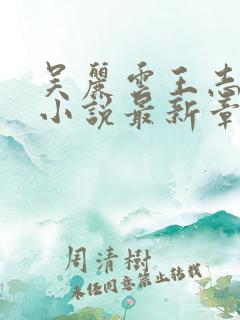 吴麗雲王志
小說最新章
周清樹
未经同意禁止转载